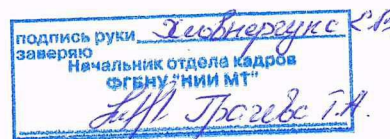 подпись руки
заверяю
Начальник отдела кадров
ФГБНУ "НИИ МТ"
Грачева Т.А.